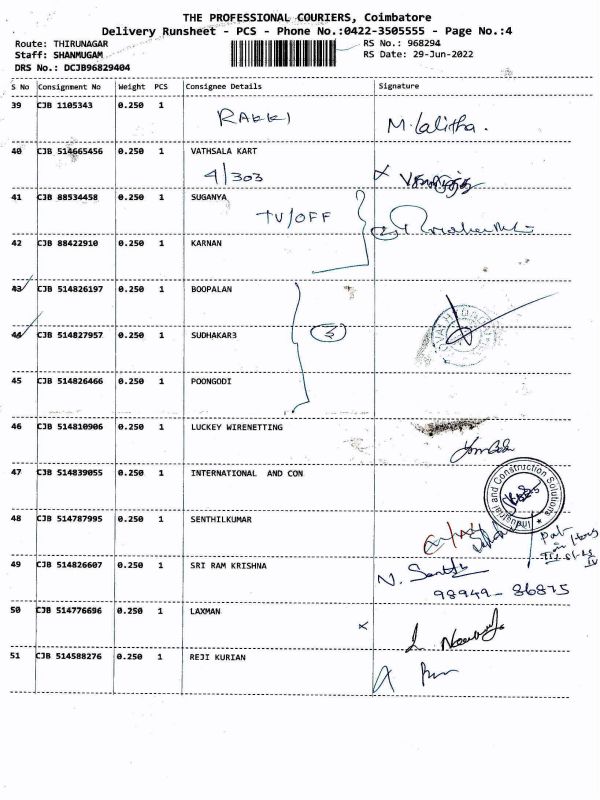 THE PROFESSIONAL COURIERS, Coimbatore
Delivery Runsheet - PCS - Phone No.:0422-3505555 - Page No.:4
Route: THIRUNAGAR
RS No.: 968294
Staff: SHANMUGAM
RS Date: 29-Jun-2022
DRS No.: DCJB96829404
S No Consignment No Weight PCS Consignee Details Signature
39 CJB 1105343 0.250 1 RAKKI M. Lalitha.
40 CJB 514665456 0.250 1 VATHSALA KART
4/303
41 CJB 88534458 0.250 1 SUGANYA
TV/OFF
42 CJB 88422910 0.250 1 KARNAN
43 CJB 514826197 0.250 1 BOOPALAN
44 CJB 514827957 0.250 1 SUDHAKAR3
45 CJB 514826466 0.250 1 POONGODI
46 CJB 514810906 0.250 1 LUCKEY WIRENETTING
47 CJB 514839055 0.250 1 INTERNATIONAL AND CON
Industrial and Construction Solutions
48 CJB 514787995 0.250 1 SENTHILKUMAR
49 CJB 514826607 0.250 1 SRI RAM KRISHNA
98949-86875
50 CJB 514776696 0.250 1 LAXMAN
51 CJB 514588276 0.250 1 REJI KURIAN